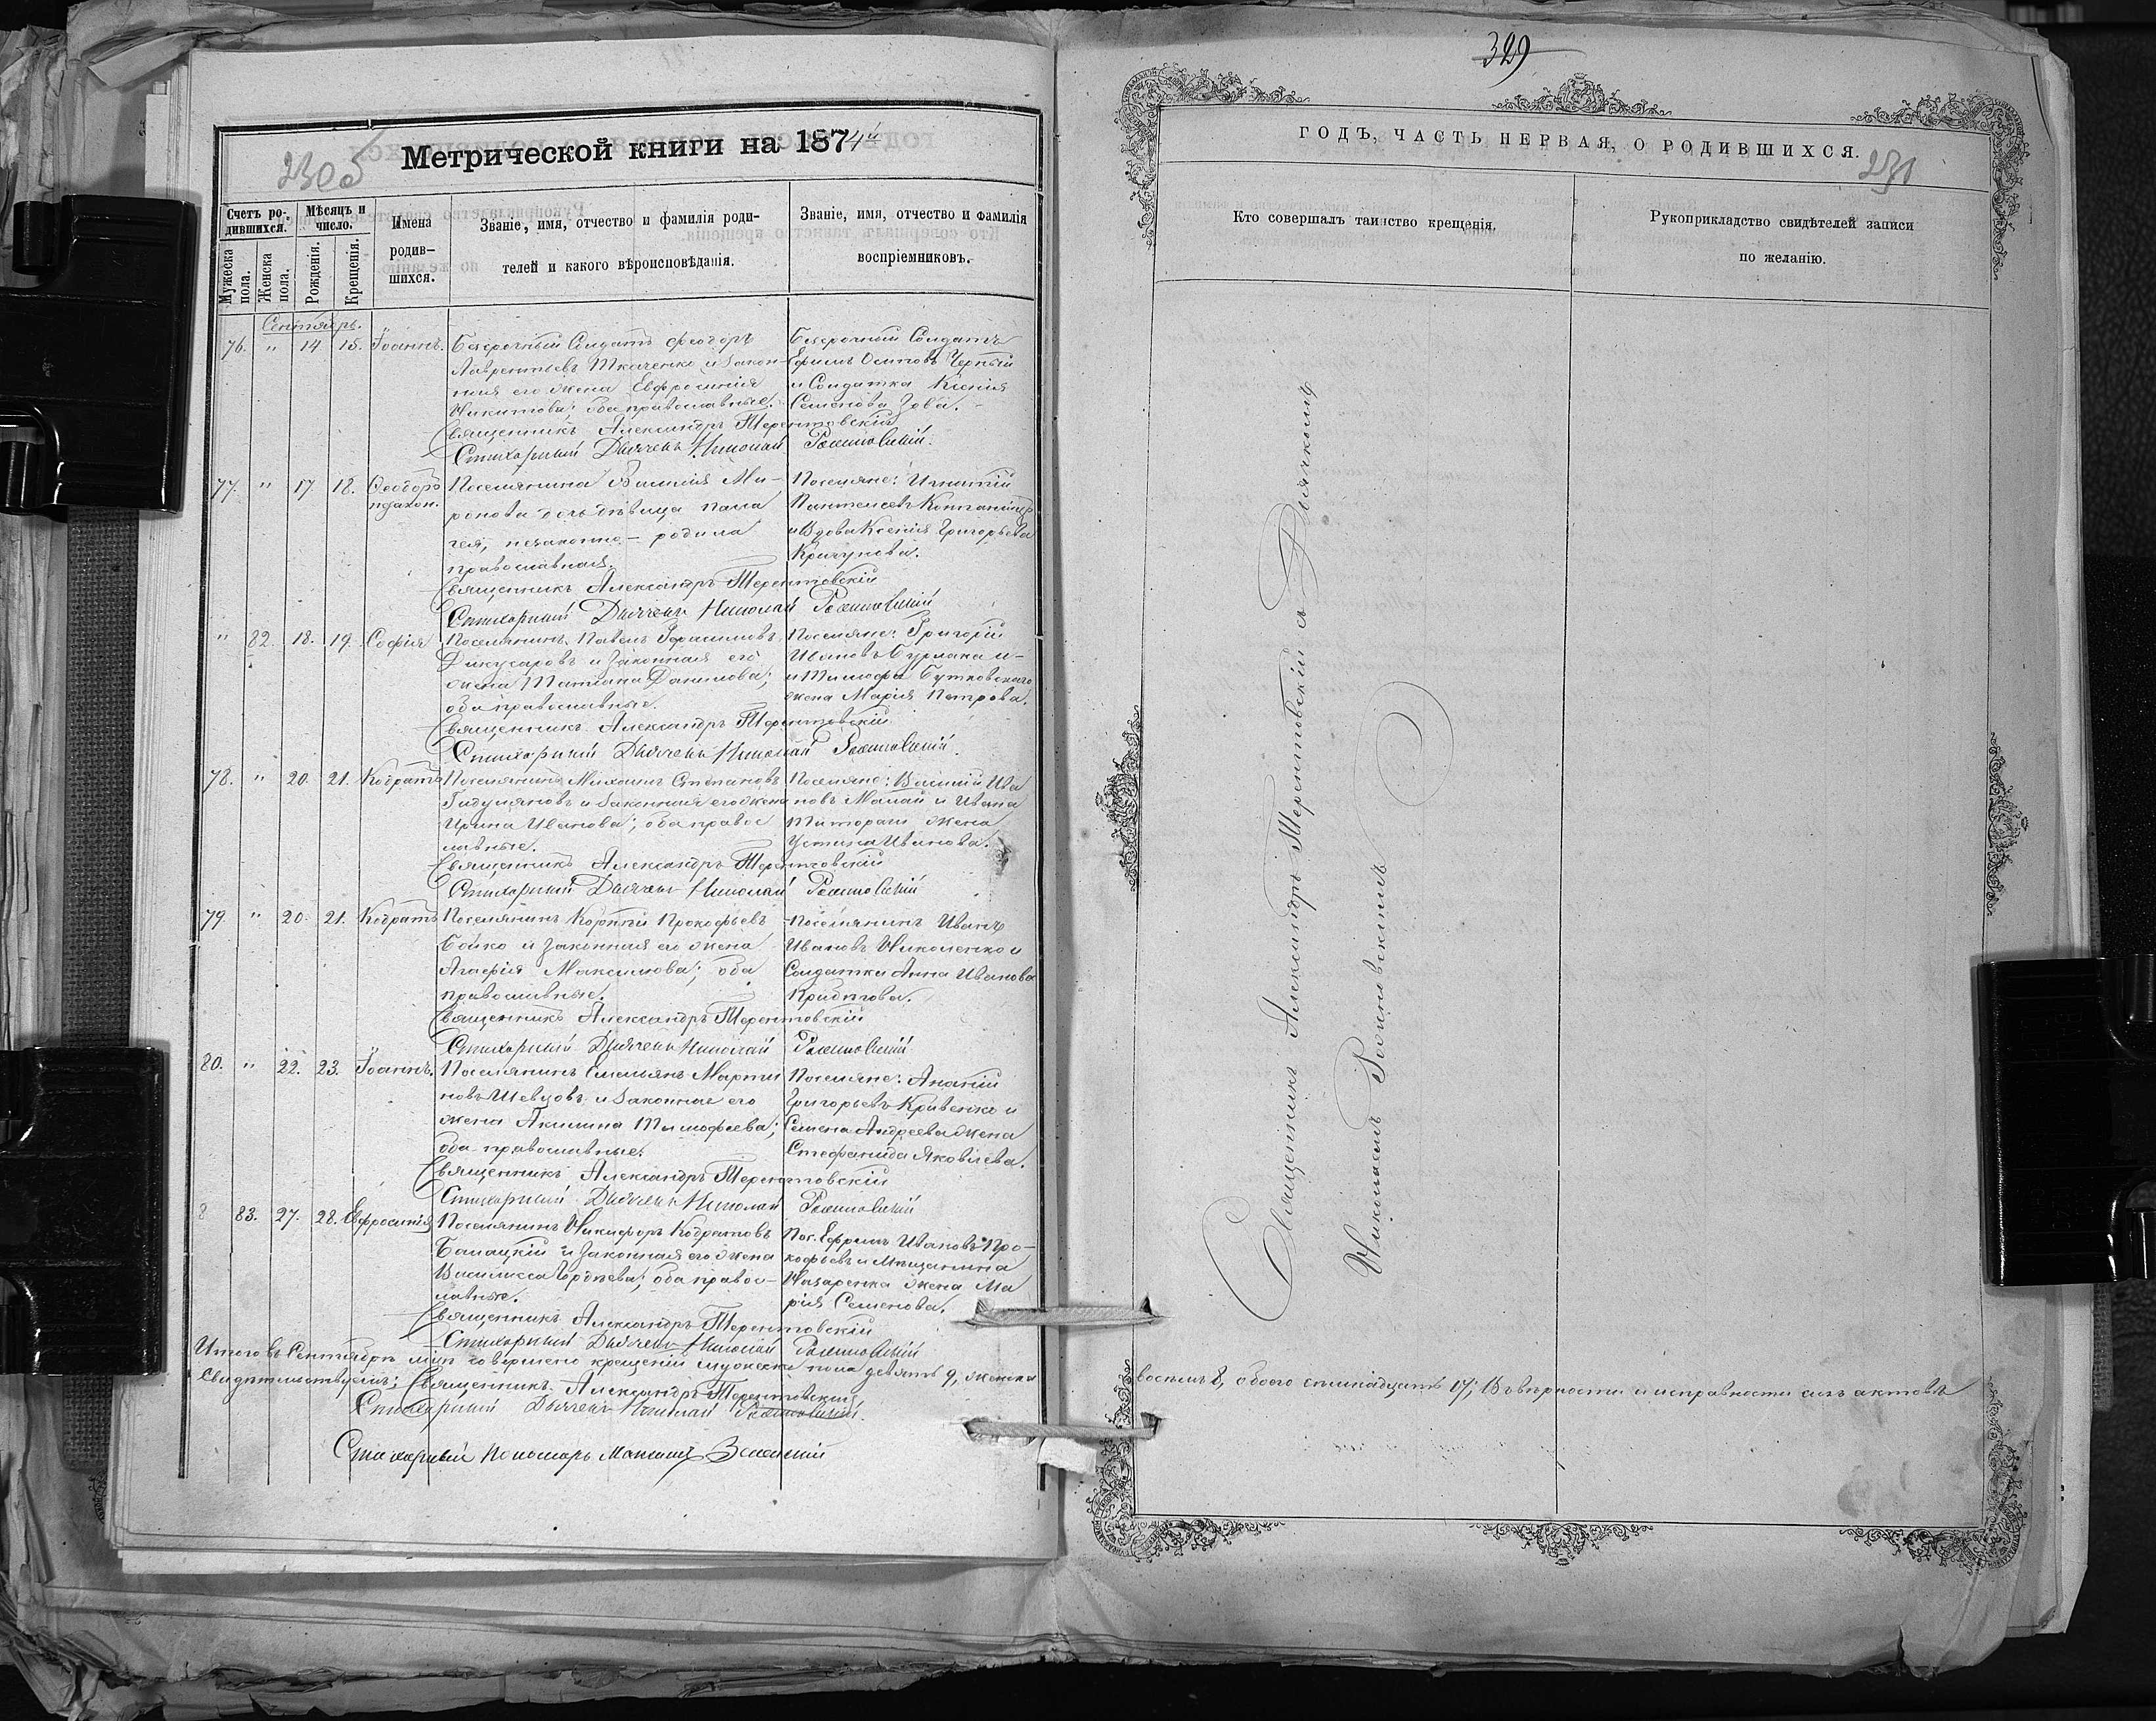 329
230 об
Метрической книги на 1874й
Счетъ ро-
дившихся.
Мѣсяцъ и
число.
Мужеска
пола.
Женска
пола.
Рожденія.
Крещенія.
Имена
родив-
шихся.
Званіе, имя, отчество и фамилія роди-
телей и какого вѣроисповѣданія.
Званіе, имя, отчество и фамилія
воспріемниковъ.
Сентябрь.
76. " 14 15. Іоаннъ. Безсрочный Солдатъ Феодоръ Безсрочный Солдатъ
Лаврентьевъ Ткаченко и закон- Ефимъ Осиповъ Черный
ная его жена Евфросинія и Солдатка Ксенія
Никитова; оба православные. Семенова
Священникъ Александръ Терентовскій
Стихарный Дьячекъ Николай
77. " 17. 18. Ѳеодоръ Поселянина Василія Ми- Поселяне: Игнатій
незакон. ронова дочь дѣвица Пела Пантелеевъ
гея, незаконно родила и Вдова Ксенія Григорьева
православная.
Священникъ Александръ Терентовскій
Стихарный Дьячекъ Николай
" 82. 18. 19. Софія Поселянинъ Павелъ Герасимовъ Поселяне: Григорій
Дикусаровъ и законная его Ивановъ Бурлака и
жена Татіана Данилова; и Тимофея Бутковскаго
оба православные. жена Марія Петрова.
Священникъ Александръ Терентовскій
Стихарный Дьячекъ Николай
78. " 20. 21. Кодратъ Поселянинъ Михаилъ Степановъ Поселяне: Василій Ива
и законная его жена новъ Малай и Ивана
Ирина Иванова; оба правос жена
лавные. Устина Иванова.
Священникъ Александръ Терентовскій
Стихарный Дьячекъ Николай
79. " 20. 21. Кодратъ Поселянинъ Прокофьевъ Поселянинъ Иванъ
Бойко и законная его жена Ивановъ Николенко и
Агафія Максимова; оба Солдатка Анна Иванова
православные.
Священникъ Александръ Терентовскій
Стихарный Дьячекъ Николай
80. " 22. 23. Іоаннъ. Поселянинъ Емельянъ Марти Поселяне: Ананій
новъ Шевцовъ и законная его Григорьевъ Кривенко и
жена Акилина Тимофеева; Семена Андреева жена
оба православные. Стефанида Яковлева.
Священникъ Александръ Терентовскій
Стихарный Дьячекъ Николай
83. 27. 28. Евфросинія Поселянинъ Никифоръ Кодратовъ Пос. Ефримъ Ивановъ Про-
Балацкій и законная его жена кофьевъ и Мещанина
Василисса оба правос- Назаренка жена Ма
лавные. рія Семенова.
Священникъ Александръ Терентовскій
Стихарный Дьячекъ Николай
Итого въ Сентябрѣ мцѣ совершено крещеній мужеска пола девять 9, женска
Свидѣтельствуемъ: Священникъ Александръ Терентовскій
Стихарный Дьячекъ Николай
Стихарный Пономарь
ГОДЪ, ЧАСТЬ ПЕРВАЯ, О РОДИВШИХСЯ.
231
Кто совершалъ таинство крещенія.
Рукоприкладство свидѣтелей записи
по желанію.
Священникъ Александръ Терентовскій съ Дьячкомъ
Николаемъ
восемь 8, обоего семнадцать 17; Въ вѣрности и исправности сихъ актовъ